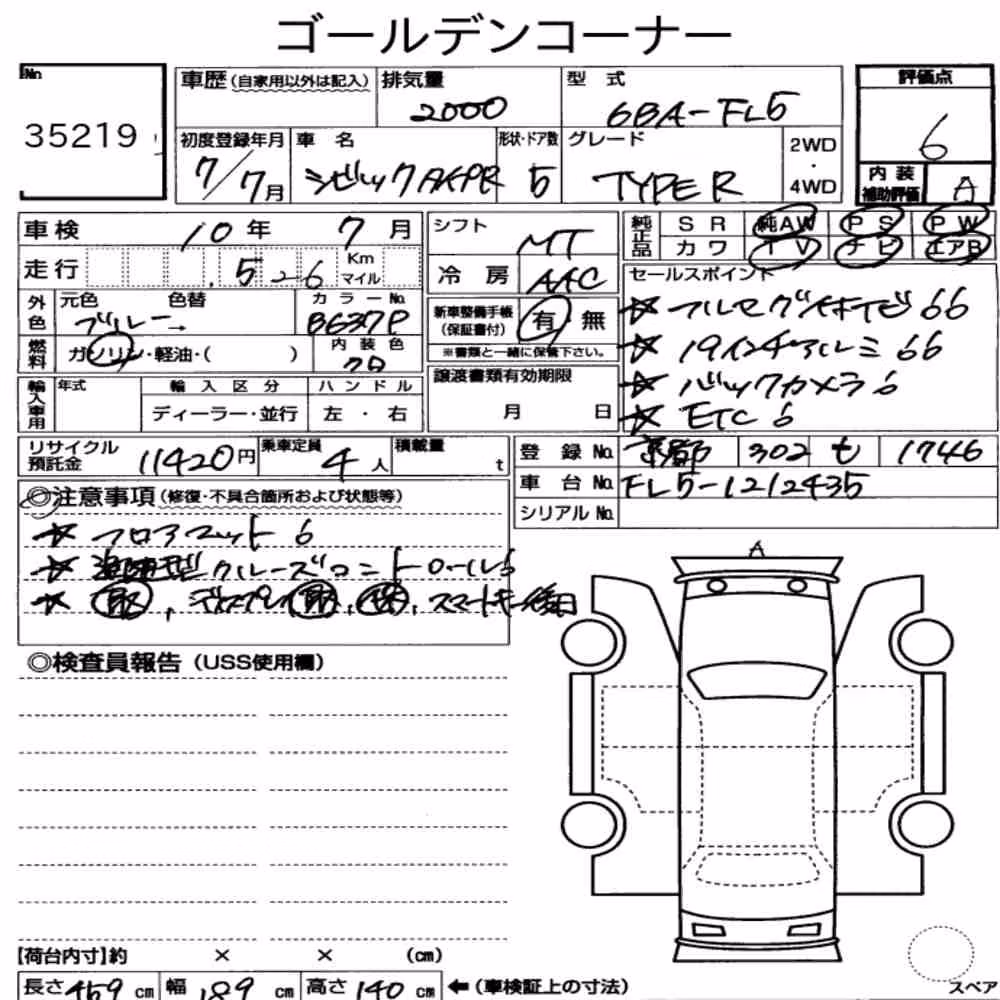 ゴールデンコーナー
No
35219
車歴 (自家用以外は記入)
排気量
2000
型 式
6BA-FL5
評価点
6
初度登録年月
7/7月
車 名
シビック
形状・ドア数
5
グレード
TYPE R
2WD
・
4WD
内 装
補助評価
A
車検 10年 7月
走行
Km
マイル
シフト
MT
冷 房
AAC
純正品
S R 純AW P S P W
カ ワ T V ナ ビ エアB
外色
元色 色替
ブルー→
カラーNo.
B637P
燃料
ガソリン・軽油・( )
内 装 色
クロ
新車整備手帳
(保証書付)
有 無
※書類と一緒に保管下さい。
セールスポイント
☆ フルセグナビ
☆ 19インチアルミ
☆ バックカメラ
☆ ETC
輸入車用
年式
輸 入 区 分
ディーラー・並行
ハ ン ド ル
左 ・ 右
譲渡書類有効期限
月 日
リサイクル
預託金
11420円
乗車定員
4人
積載量
t
登 録 No.
京都 302 も 1746
車 台 No.
FL5-1212435
シリアルNo.
◎注意事項 (修復・不具合箇所および状態等)
☆ フロアマット
☆ 追従型クルーズコントロール
☆ 取, ディスプレイ取, 保, スマートキー後日
A
◎検査員報告 (USS使用欄)
【荷台内寸】約 × × (cm)
長さ 459 cm 幅 189 cm 高さ 140 cm ←(車検証上の寸法)
スペア